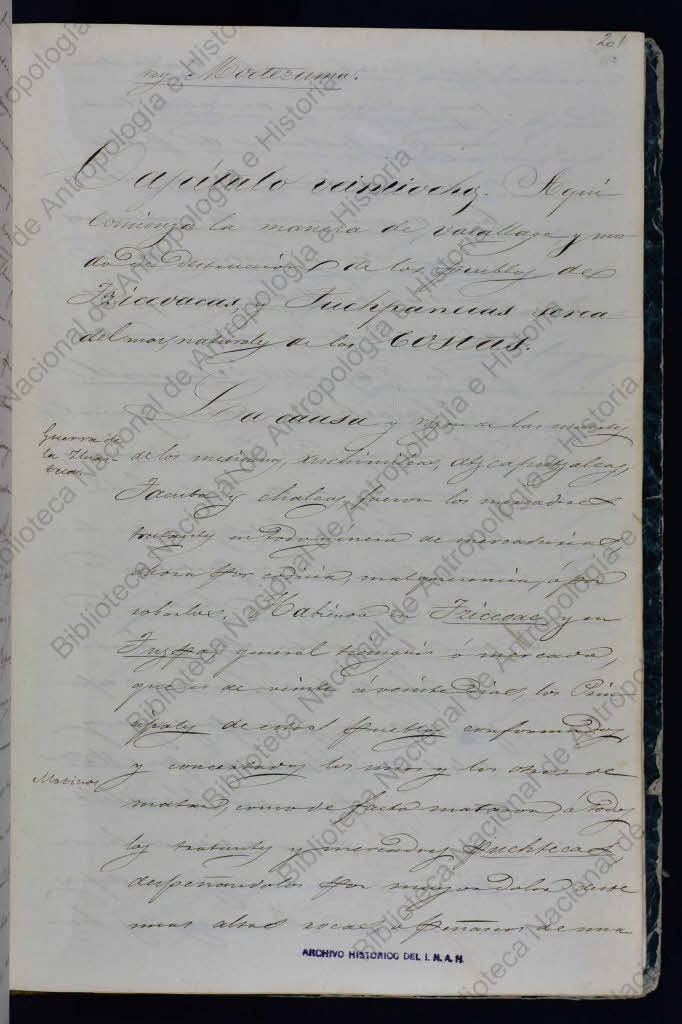 201
rey Moctezuma.
Capítulo veintiocho. Aquí
comienza la manera de vasallage y mo-
do de destruccion de los pueblos de
Tziccoacas, y Tuchpanecas cerca
del mar, naturales de los Costas.
La causa y razon de las muertes
Guerra de
la Huas-
teca.
de los mexicanos, xuchimilcas, atzcaputzalcas,
Tacuba y chalcas, fueron los mercaderes
tratantes en todo género de mercaderias,
ahora por codicia, malquerencia, ó por
robarlos. Habiendo en Tziccoac, y en
Tuzpa, general tianguis ó mercado,
que es de veinte á veinte dias, los Prin-
cipales de estos pueblos conformados,
y concertados los unos y los otros de
Motivos
matar, como de facto mataron, á todos
los tratantes y mercaderes puchtecas,
despeñandolos por mayor dolor desde
unas altas rocas ó peñascos de una
ARCHIVO HISTORICO DEL I. N. A. H.
Biblioteca Nacional de Antropología e Historia